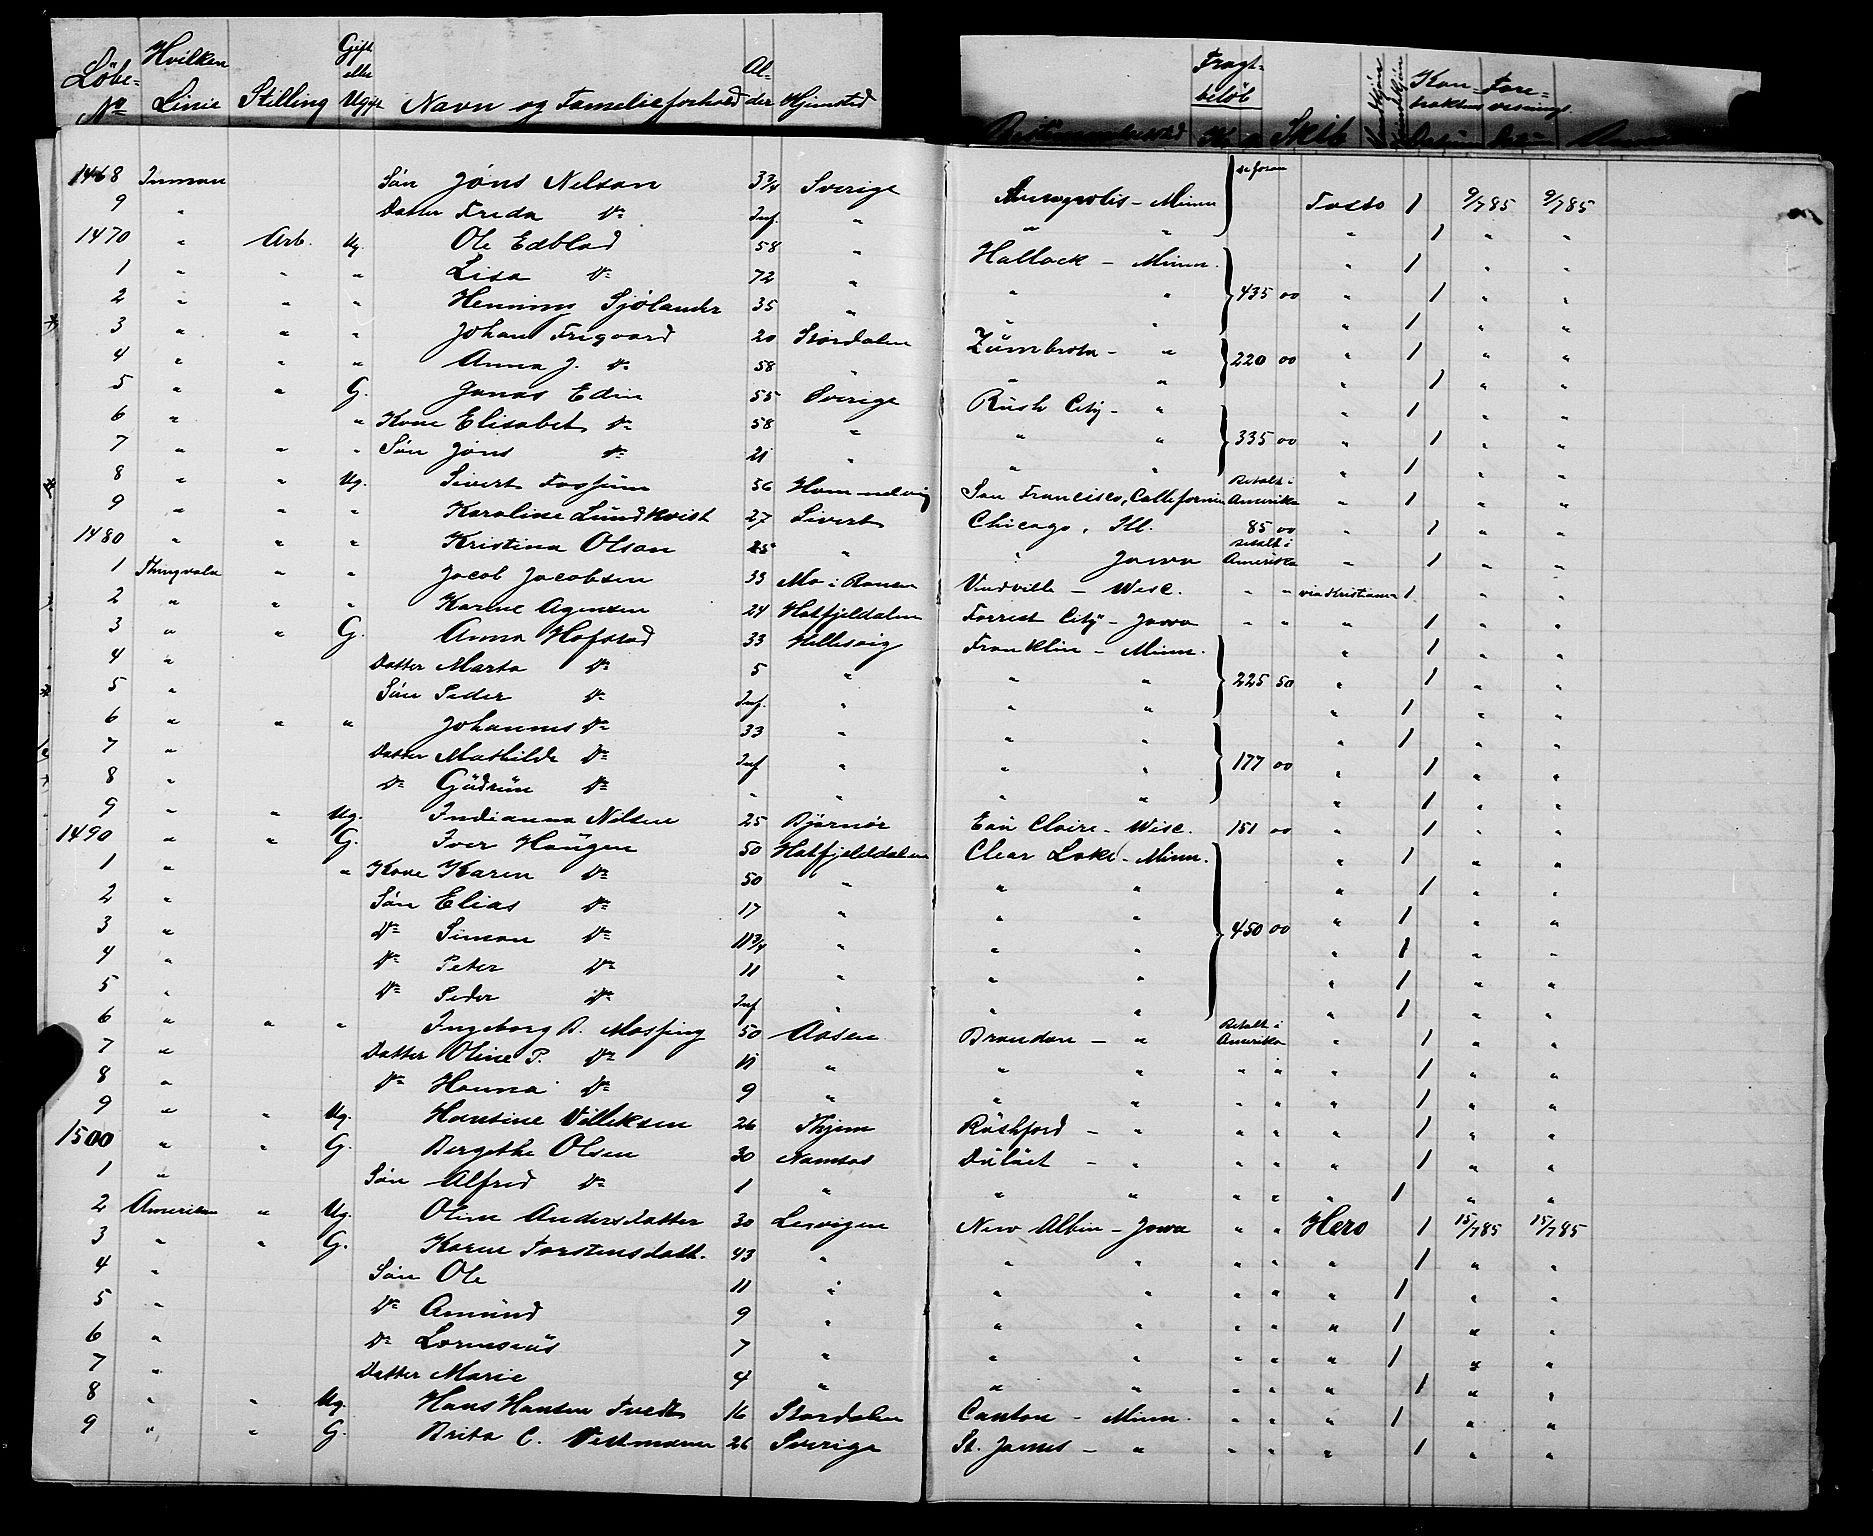 Löbe- No Hvilken Linie Stilling Gift eller Ugift Navn og Familieforhold Alder Hjemsted Bestemmelsessted Fragt-beløb Kr. ø Skib Mandkjøn Kvindekjøn Kontraktens Datum Forevisnings Datum
1468 Inman Søn Jöns Nelson 3 3/4 Sverige Minneapolis - Minn se foran Tasso 1 9/7 85 9/7 85
9 " Datter Frida Do Inf. " " " " 1 " "
1470 " Arb. Ug Ole Edblad 58 " Hallock - Minn. " 1 " "
1 " " " Lisa Do 72 " " " 435 00 " 1 " "
2 " " " Henning Sjölander 35 " " " " 1 " "
3 " " " Johan Frigaard 20 Størdalen Zümbrota - " 220 00 " 1 " "
4 " " " Anna J. Do 58 " " " " 1 " "
5 " " G. Jonas Edin 55 Sverige Rüsh City - " " 1 " "
6 " " Kone Elisabet Do 58 " " " 335 00 " 1 " "
7 " " " Søn Jöns Do 21 " " " " 1 " "
8 " " Ug. Sivert Fossum 56 Hommelvig San Francisco, Callifornia Betalt i Amerika " 1 " "
9 " " " Karoline Lündkvist 27 Sivert Chicago, Ill. 85 00 " 1 " "
1480 " " " Kristina Olson 25 " Jowa Betalt i Amerika " 1 " "
1 Thingvala " " Jacob Jacobsen 33 Mo i Ranen Vindville - Wisc. " " via Kristiania 1 " "
2 " " " Karine Agensen 24 Hatfjeldalen Forrest City - Jowa " " " 1 " "
3 " " G. Anna Hofstad 33 Hellesvig Franklin - Minn. " 1 " "
4 " Datter Marta Do 5 " " " 225 50 " 1 " "
5 " Søn Peder Do Inf. " " " " 1 " "
6 " " " Johannes Do 33 " " " " 1 " "
7 " Datter Mathilde Do Inf " " " 177 00 " 1 " "
8 " Do Güdrün Do " " " " " 1 " "
9 " " Ug. Indianna Nilsen 25 Bjørnør Eau Claire - Wisc. 151 00 " 1 " "
1490 " " G. Iver Haügen 50 Hatfjelddalen Clear Lake - Minn. " 1 " "
1 " " Kone Karen Do 50 " " " " 1 " "
2 " Søn Elias Do 17 " " " " 1 " "
3 " Do Simon Do 11 3/4 " " " 450 00 " 1 " "
4 " Do Peter Do 11 " " " " 1 " "
5 " Do Peder Do Inf " " " " 1 " "
6 " " " Ingeborg B. Mosling 50 Aasen Brandon - " Betalt i Amerika " 1 " "
7 " Datter Oline P. Do 11 " " " " " " 1 " "
8 " Do Hanna Do 9 " " " " " " 1 " "
9 " " Ug. Hansine Villiksen 26 Skjørn Rüshford - " " " " 1 " "
1500 " " G. Bergethe Olsen 30 Namsos Dülüet - " " " " 1 " "
1 " Søn Alfred Do 1 " " " " " " 1 " "
2 Amerikan " Ug. Oline Andersdatter 30 Lesvigen New Albin - Jowa " " Hero 1 15/7 85 15/7 85
3 " " G. Karen Torstensdatt. 43 " " " " " " 1 " "
4 " Søn Ole 11 " " " " " " 1 " "
5 " Do Amünd 9 " " " " " " 1 " "
6 " Do 7 " " " " " " 1 " "
7 " Datter Marie 4 " " " " " " 1 " "
8 " " Ug. Hans Hansen Tvedt 16 Størdalen Canton - Minn. " " " 1 " "
9 " " G. Brita C. Vestmann 26 Sverige St. James - " " " " 1 " "